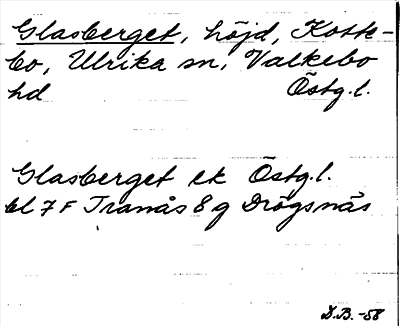 Glasberget, höjd, Kotte-
bo, Ulrika sn, Valkebo
hd Östg.l.
Glasberget ek Östg.l.
bl 7 F Tranås 8 g Drögsnäs
D.B. -58